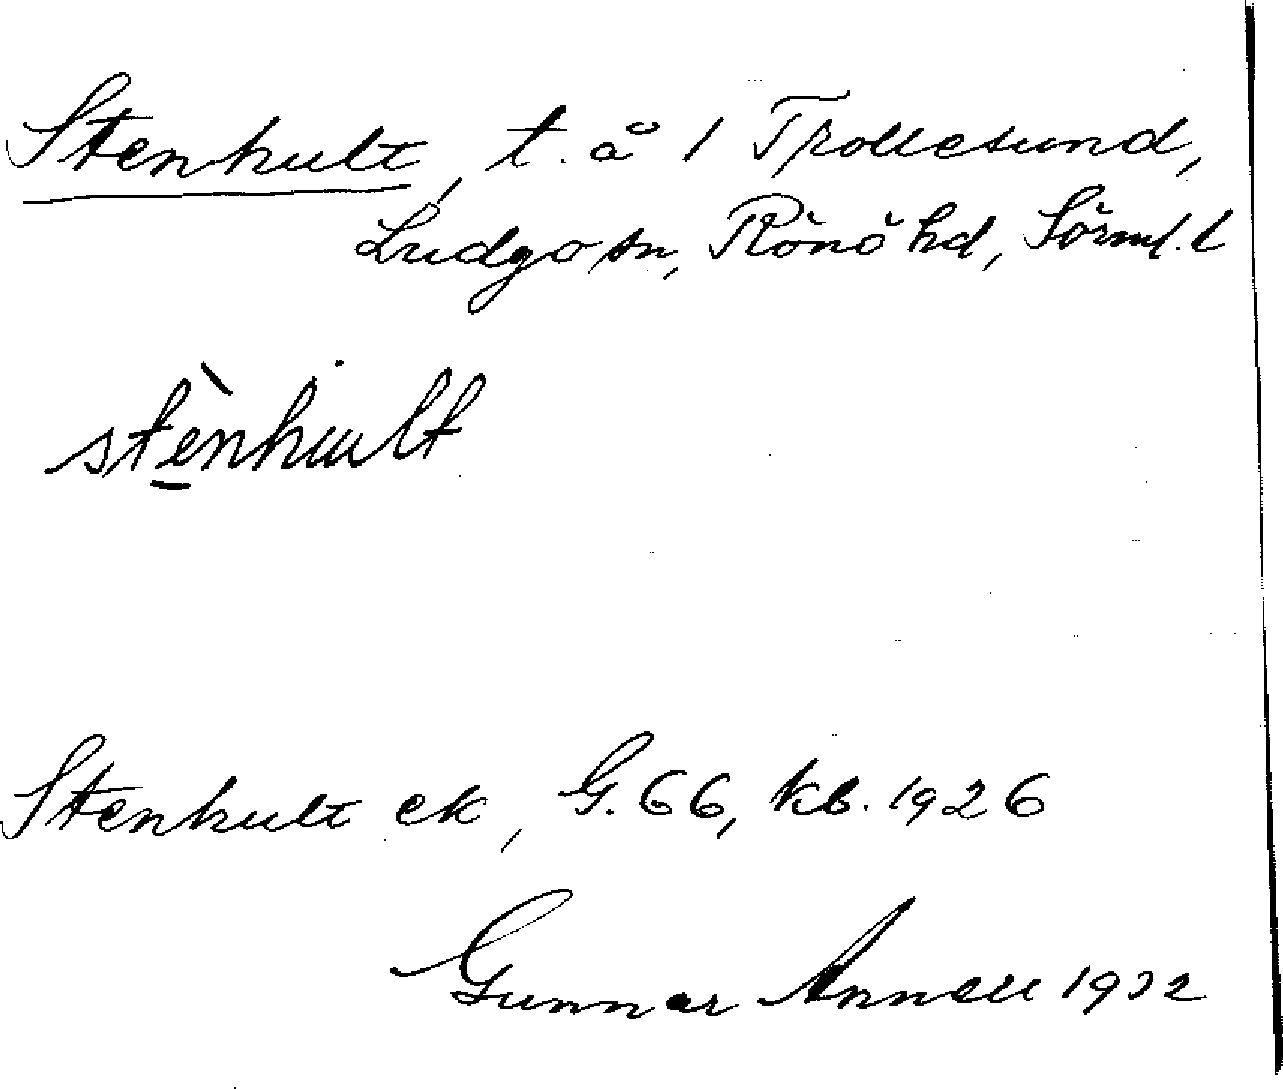 Stenhult, t. å 1 Trollesund,
Ludgo sn, Rönö hd, Sörml. l
stènhult
Stenhult ek, G. 66, kb. 1926
Gunnar Annell 1932